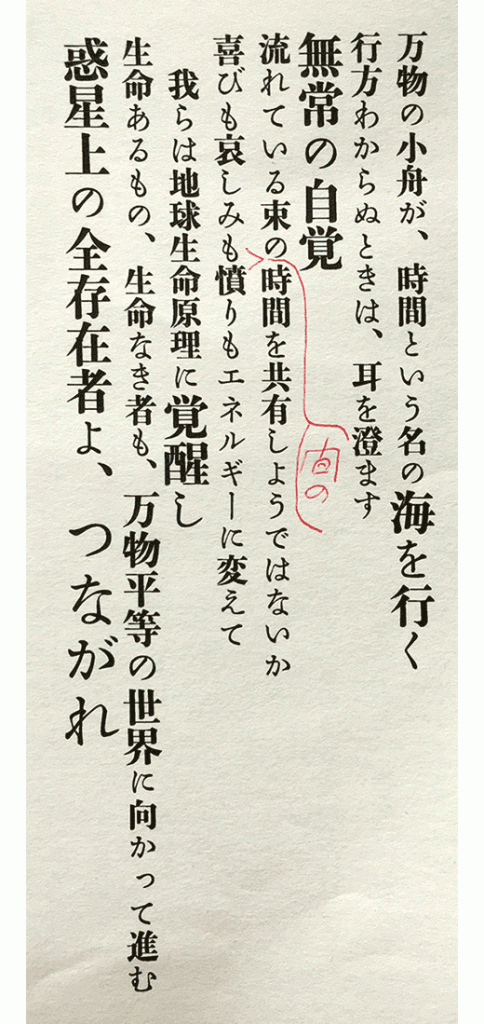 万物の小舟が、時間という名の海を行く
行方わからぬときは、耳を澄ます
無常の自覚
流れている束の時間を共有しようではないか
間の
喜びも哀しみも憤りもエネルギーに変えて
我らは地球生命原理に覚醒し
生命あるもの、生命なき者も、万物平等の世界に向かって進む
惑星上の全存在者よ、つながれ